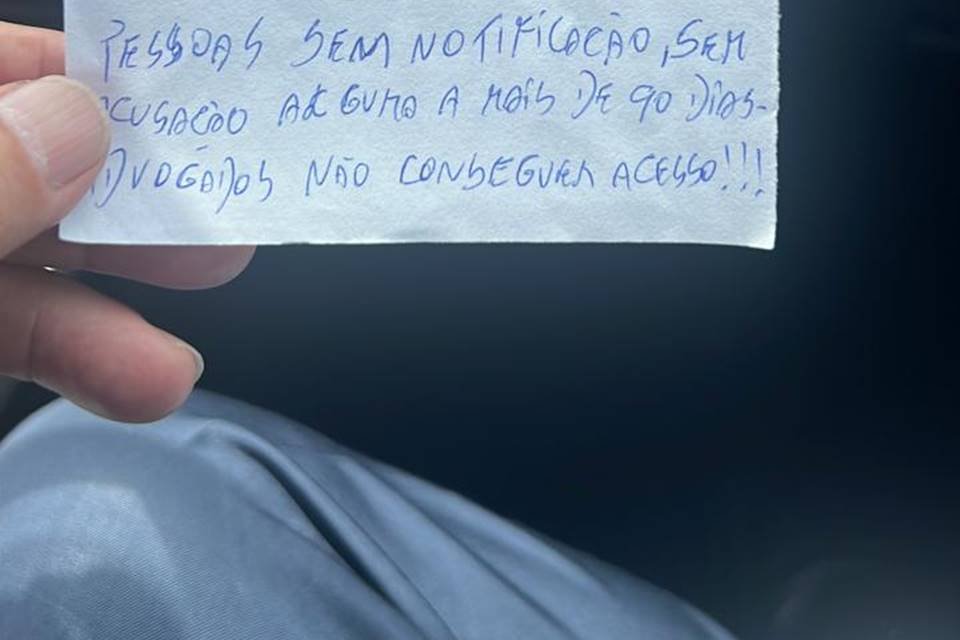 PESSOAS SEM NOTIFICAÇÃO, SEM
ACUSAÇÃO ALGUMA A MAIS DE 90 DIAS-
ADVOGADOS NÃO CONSEGUEM ACESSO!!!